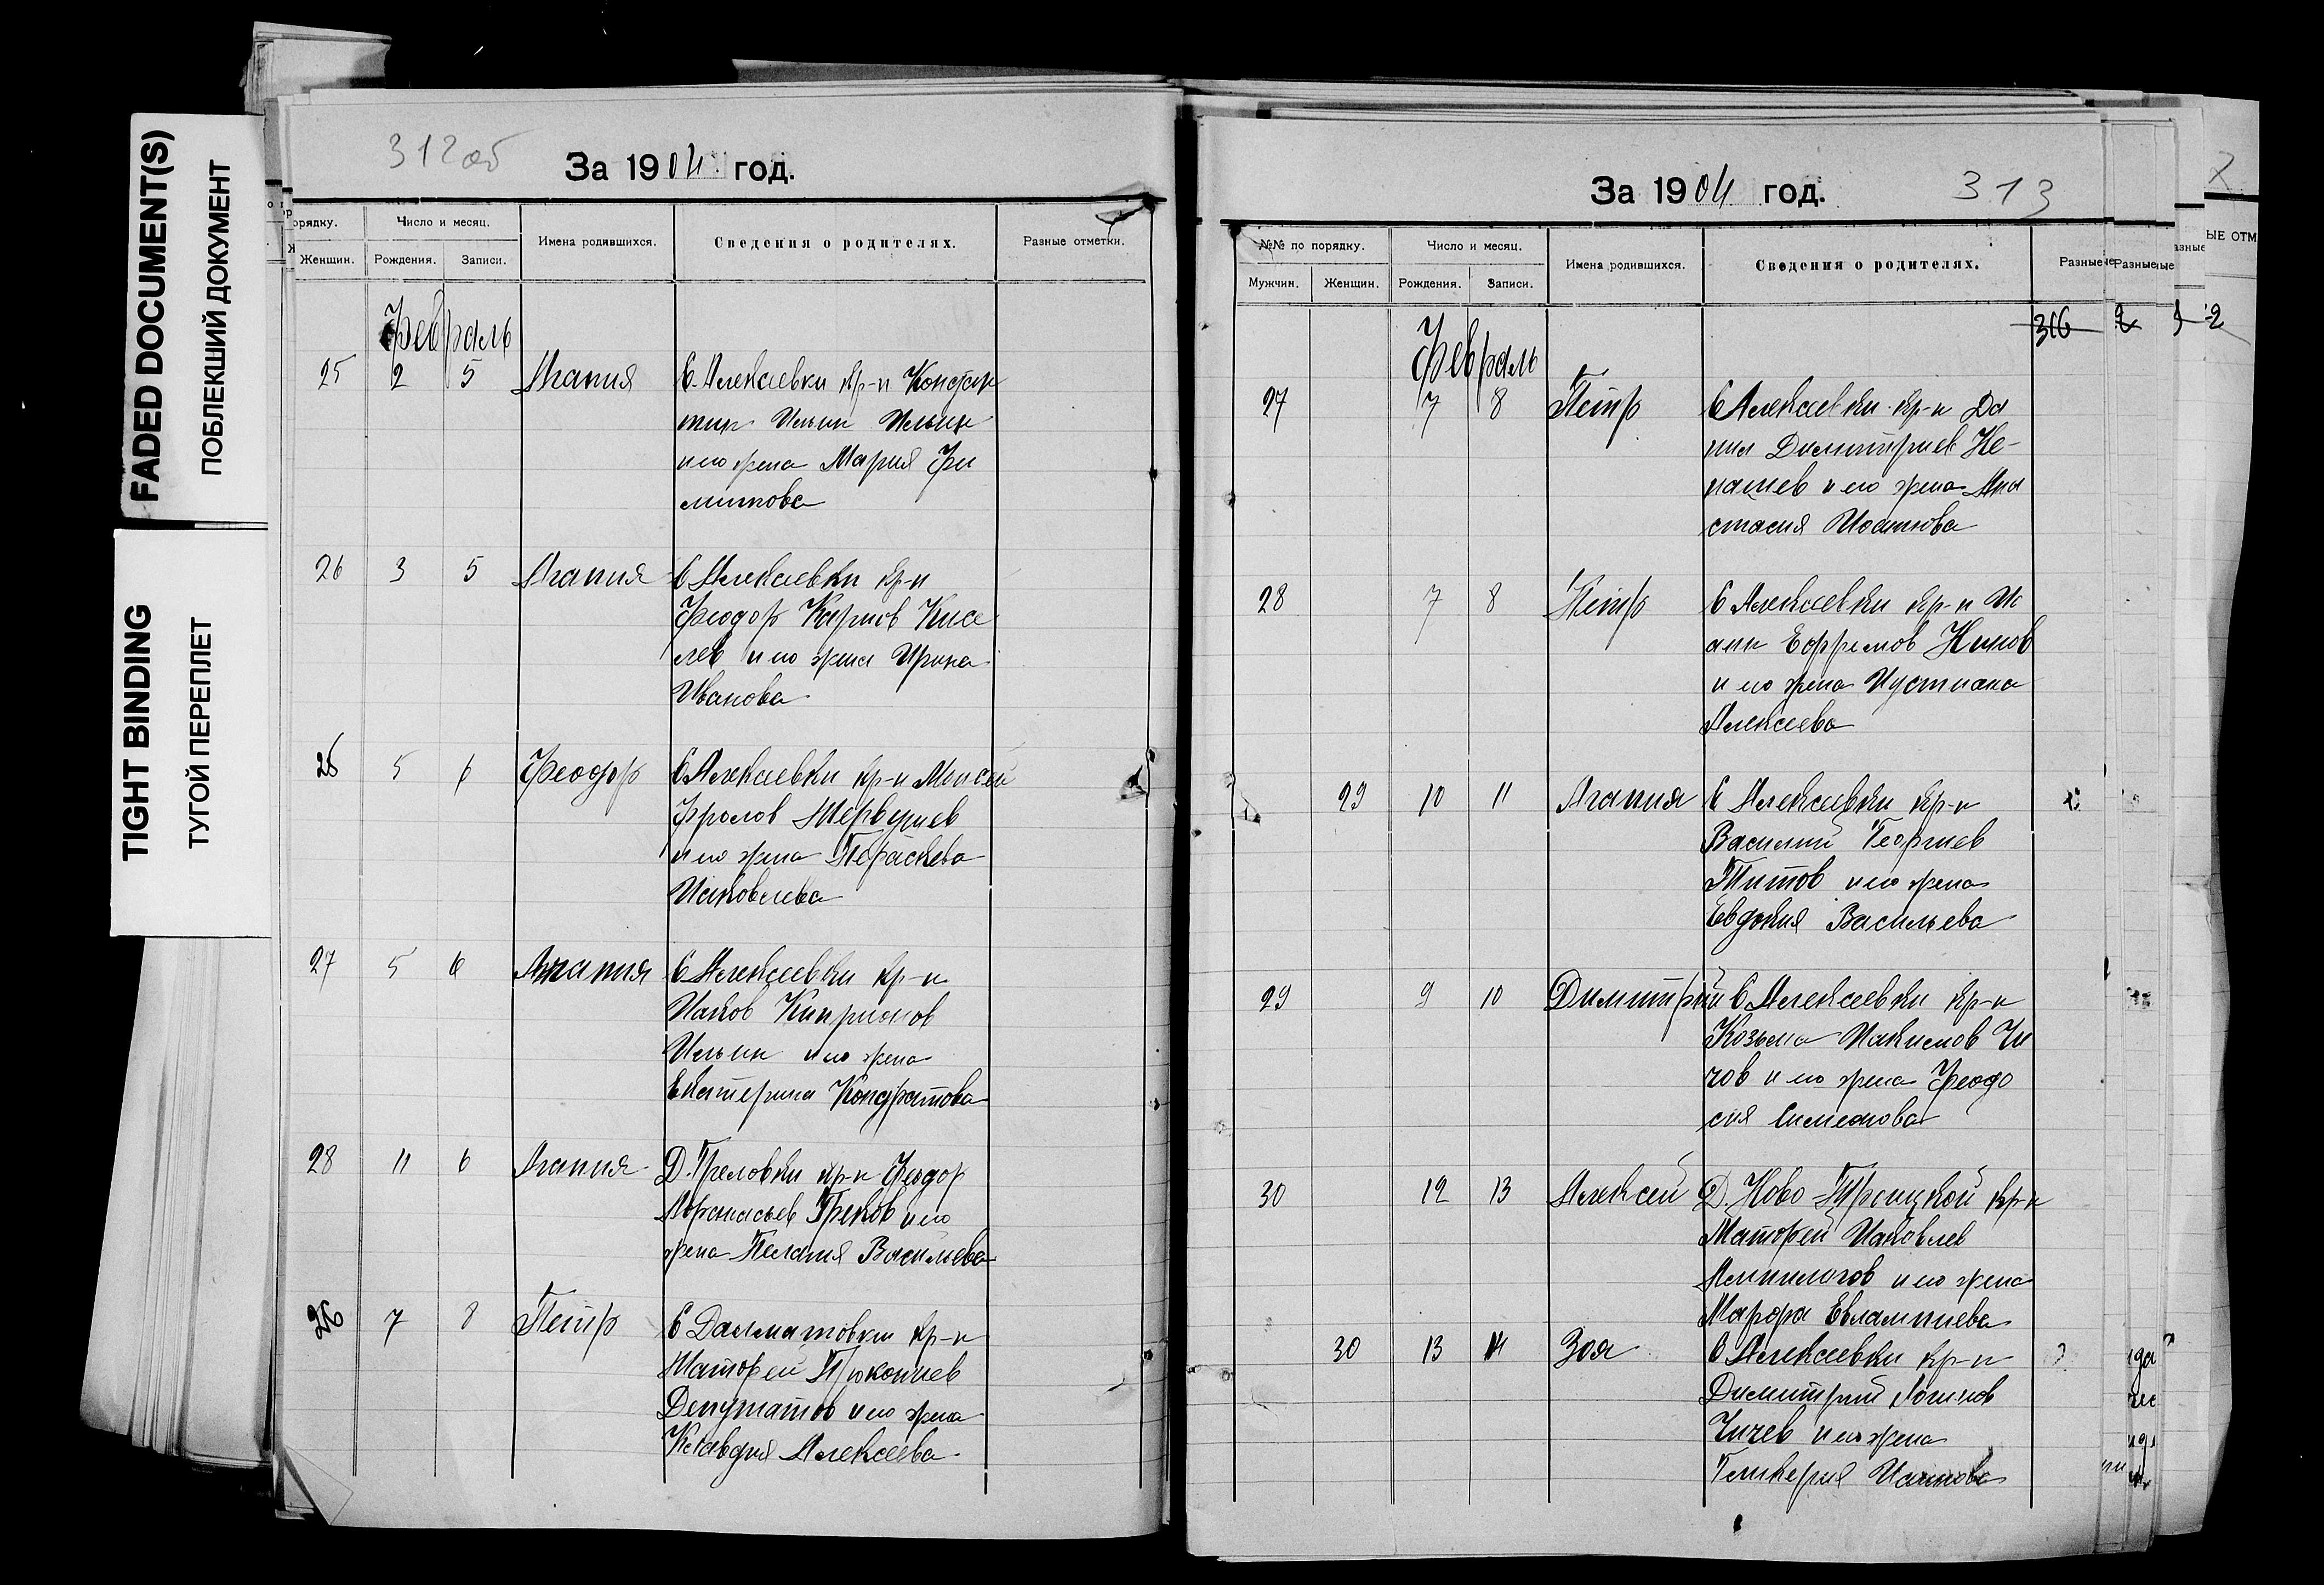 FADED DOCUMENT(S)
ПОБЛЕКШИЙ ДОКУМЕНТ
TIGHT BINDING
ТУГОЙ ПЕРЕПЛЕТ
312об
За 1904 год.
орядку.
Число и месяц.
Имена родившихся.
Сведения о родителях.
Разные отметки.
Женщин.
Рождения.
Записи.
Февраль
25 2 5 Агапия С. Алексеевки кр-н Констан
тин Ильин Ильин
и его жена Мария Фи
липова
26 3 5 Агапия С Алексеевки кр-н
Феодор Карпов Кисе
лев и его жена Ирина
Иванова
26 5 6 Феодор С Алексеевки кр-н Моисей
Фролов
и его жена Параскева
Иаковлева
27 5 6 Агапия С Алексеевки кр-н
Иаков Киприанов
Ильин и его жена
Екатерина Кондратова
28 11 6 Агапия Д. Грековки кр-н Феодор
Афанасьев Греков и его
жена Пелагия Васильева
26 7 8 Петр С Далматовки кр-н
Матфей Прокопиев
Депутатов и его жена
Клавдия Алексеева
За 1904 год.
313
№№ по порядку.
Число и месяц.
Имена родившихся.
Сведения о родителях.
Разные
Мужчин.
Женщин.
Рождения.
Записи.
316
Февраль
27 7 8 Петр С Алексеевки кр-н Да
нил Димитриев Не-
нашев и его жена Ана
стасия Иоаннова
28 7 8 Петр С Алексеевки кр-н И
оанн Ефремов
и его жена Иустиана
Алексеева
29 10 11 Агапия С Алексеевки кр-н
Василий Георгиев
Титов и его жена
Евдокия Васильева
29 9 10 Димитрий С Алексеевки кр-н
Козьма Иакимов Чи
чов и его жена Феодо
сия Симеонова
30 12 13 Алексей Д. Ново-Троицкой кр-н
Матфей Иаковлев
Ампилогов и его жена
Марфа Евлампиева
30 13 14 Зоя С Алексеевки кр-н
Димитрий Логинов
Чичев и его жена
Гликерия Иоаннова